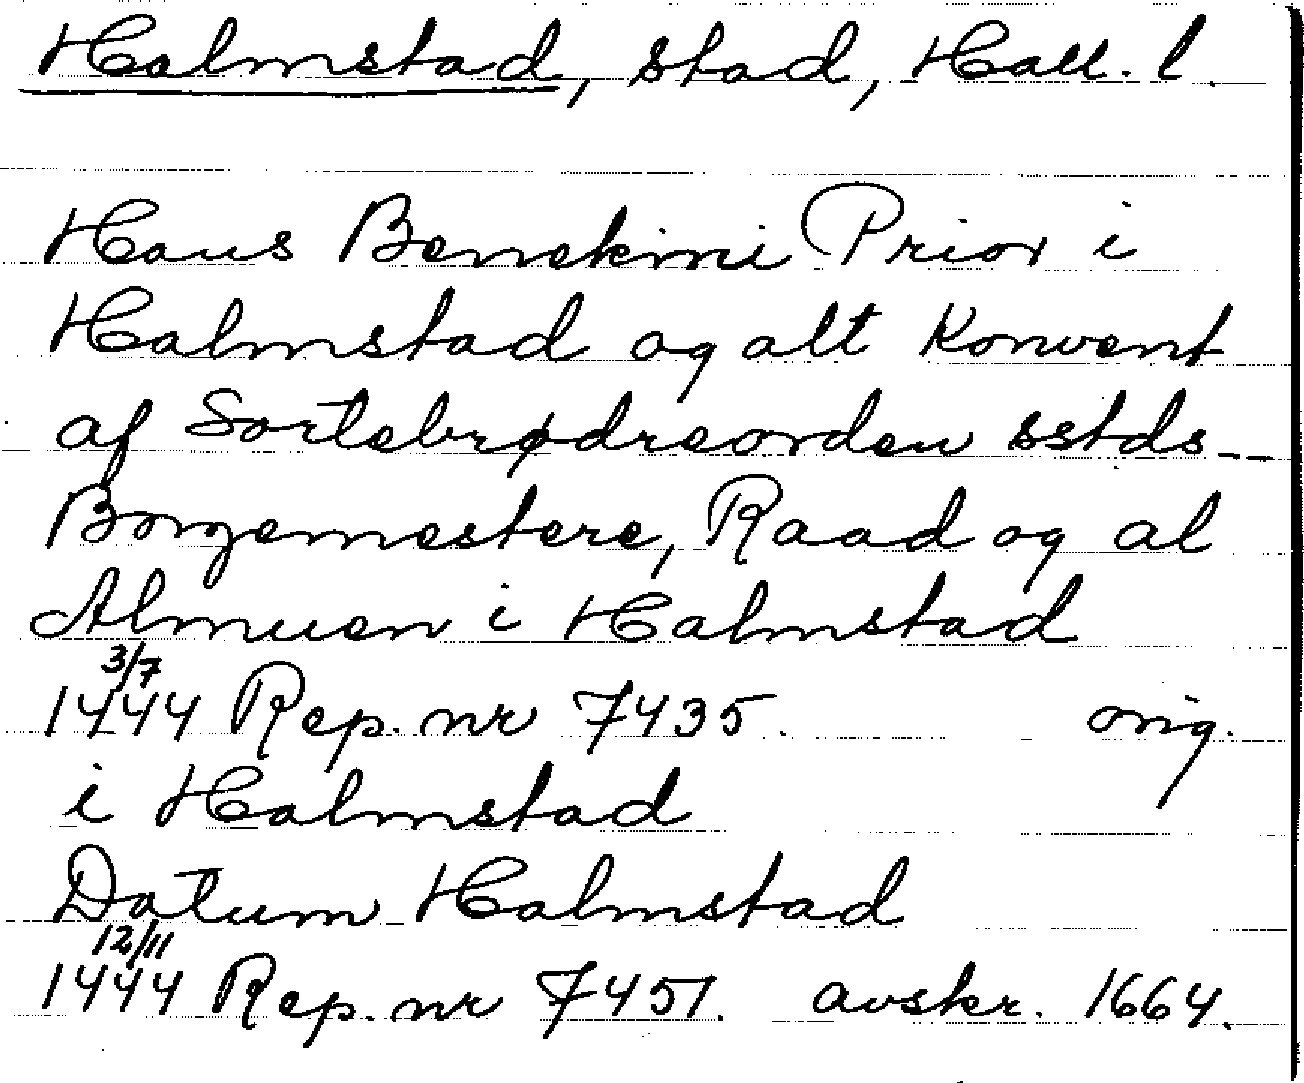 Halmstad, stad, Hall. l.
Hans Benekini Prior i
Halmstad og alt Konvent
af Sortebrødreorden sstds --
Borgemestere, Raad og al
Almuen i Halmstad
3/7
1444 Rep. nr 7435. orig.
i Halmstad
Datum Halmstad
12/11
1444 Rep. nr 7451. avskr. 1664.